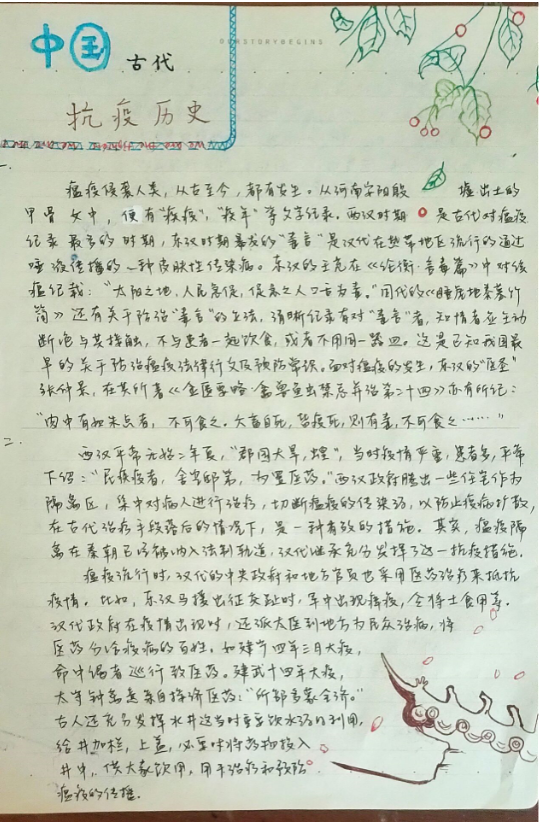 中国 古代
OURSTORYBEGINS
抗疫历史
一.
瘟疫侵袭人类，从古至今，都有发生。从河南安阳殷墟出土的
甲骨文中，便有“疾疫”，“疫年”等文字纪录。两汉时期是古代对瘟疫
纪录最多的时期，东汉时期暴发的“毒言”是汉代在热带地区流行的通过
唾液传播的一种皮肤性传染病。东汉的王充在《论衡·言毒篇》中对传
瘟纪载：“太阳之地，人民急促，促急之人口舌为毒。”用代的《睡虎地秦墓竹
简》还有关于防治“毒言”的方法，清晰纪录有对“毒言”者，知情者应主动
断绝与其接触，不与患者一起饮食，或者不用同一器皿。这是已知我国最
早的关于防治瘟疫法律行文及预防常识。面对瘟疫的发生，东汉的“医圣”
张仲景，在其所著《金匮要略·禽兽鱼虫禁忌并治第二十四》亦有所纪：
“肉中有如朱点者，不可食之。六畜自死，皆疫死，则有毒，不可食之……”
二.
西汉平帝元始二年夏，“郡国大旱，蝗”，当时疫情严重，患者多，平帝
下诏：“民疾疫者，舍空邸第，为置医药。”西汉政府腾出一些住宅作为
隔离区，集中对病人进行治疗，切断瘟疫的传染源，以防止疫病扩散，
在古代治疗手段落后的情况下，是一种有效的措施。其实，瘟疫隔
离在秦朝已经纳入法制轨道，汉代继承充分发挥了这一抗疫措施。
瘟疫流行时，汉代的中央政府和地方官员也采用医药治疗来抵抗
疫情。比如，东汉马援出征交趾时，军中出现瘴疫，令将士食用
汉代政府在疫情出现时，还派太医到地方为民众治病，将
医药分给疫病的百姓。如建宁四年三月大疫，
命中谒者巡行致医药。建武十四年大疫，
太守钟离意亲自探济医药：“所部多蒙全济。”
古人还充分发挥水井这当时重要饮水源的利用，
给井加栏，上盖，必要时将药物投入
井中，供大家饮用，用于治疗和预防
瘟疫的传播.